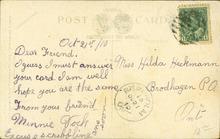 POST CARD
Oct 21st/10
Dear Friend.
I guess I must answer
your card I am well
hope you are the same
From your friend
Minnie Rock
Excuse scribbling
Miss Hilda Heckmann
Brodhagen P.O.
Ont